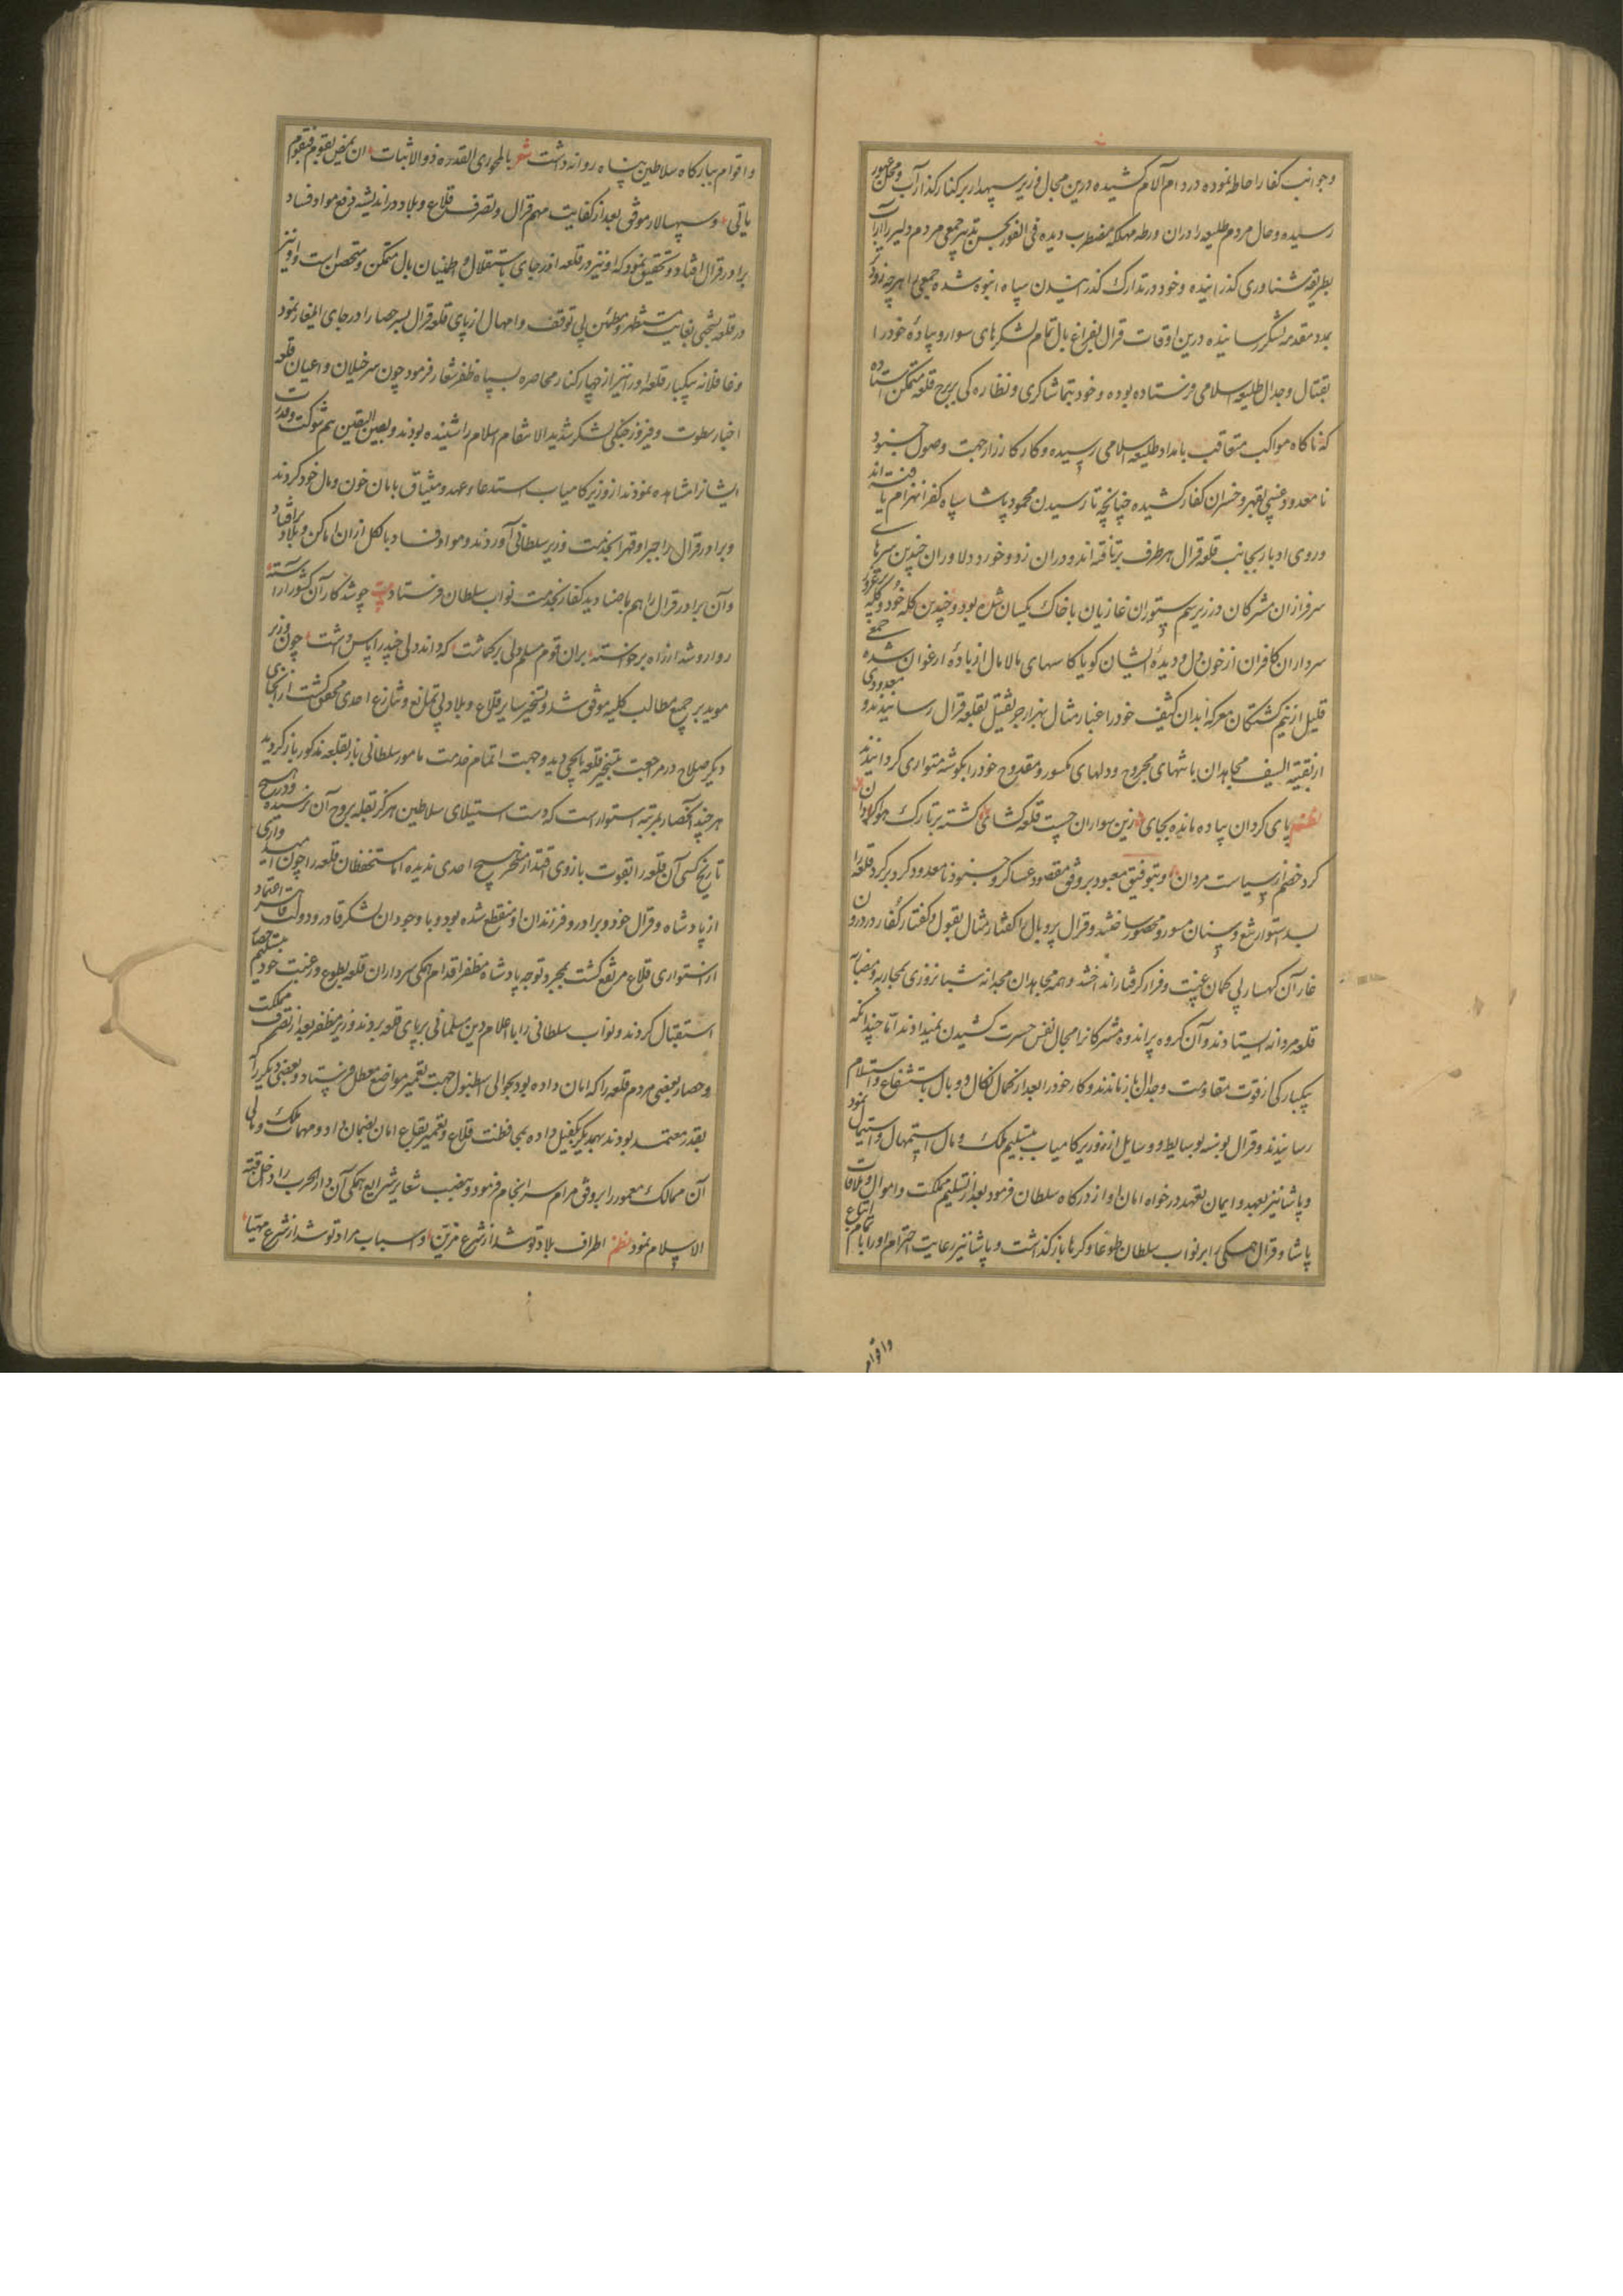 وجوانب کفار احاطه نموده در دام آلام کشیده درین مجال وزیر سپهدار بر کنار گذار آب ومحل عبور
رسیده وحال مردم طلیعه را در ان ورطه مهلکه مضطرب دیده فی الفور بحسن تدبیر جمعی مردم دلیر را از آب
بطریقه شناوری گذرانیده وخود در تدارک گذرانیدن سپاه انبوه شده جمعی را هرچه زودتر
بمدد مقدمه لشکر رسانیده درین اوقات قرال بفراغ بال تمام لشکرهای سوار و پیاده خود را
بقتال وجدال طلیعه اسلامی فرستاده بوده وخود بتماشاگری ونظاره کی بر برج قلعه متمکن ایستاده
که ناگاه مواکب متعاقب بامداد طلیعه اسلامی رسیده وکار کارزار از جهت وصول جنود
نامعدود غیبی بقهر وخسران کفار کشیده چنانچه تا رسیدن محمود پاشا سپاه کفر انهزام یافته اند
وروی ادبار بجانب قلعه قرال هر طرف برتافته اند ودران زد وخورد دلاوران چندین سرهای
سرفرازان مشرکان در زیر سم ستوران غازیان با خاک یکسان شده بود وچندین کله خود وکله پر غرور
سرداران کافران از خون دل و دیده ایشان گویا کاسهای مالامال از باده ارغوان شده جمعی
قلیل از نیم کشتگان معرکه ابدان کثیف خود را غبار مثال بهزار جر ثقیل بقلعه قرال رسانیدند و معدودی
از بقیة السیف مجاهدان با تنهای مجروح ودلهای مکسور ومقدوح خود را بگوشه متواری گردانیدند
نظم پای گردان پیاده مانده بجای زین سواران چست قلعه گشای گشته بر تارک هوا گردان
گرد خصم از سیاست مردان وبتوفیق معبود بر وفق مقصود عساکر وجنود نامعدود گرد بر گرد قلعه را
بسد استوار تیغ وسنان مسور ومحصور ساختند وقرال پر وبال را کفتار مثال بقول وگفتار کفار در درون
غار آن کهسار بی گمان غیبت وفرار گرفتار انداختند وهمه مجاهدان مجدانه شبانروزی بمحاربه ومضارب
قلعه مردانه ایستادند وآن گروه پر اندوه مشرکانرا مجال نفس حسرت کشیدن نمیدادند تا چندانکه
یکبارگی از قوت مقاومت وجدال باز ماندند وکار خود را بعد از کمال نکال و وبال باستشفاع واستسلام
رسانیدند وقرال بوسنه بوسایط و وسایل از وزیر کامیاب بتسلیم ملک ومال استمهال واستیمال نمود
وپاشا نیز بعهد وایمان تعهد درخواه امان او از درگاه سلطان فرمود بعد از تسلیم مملکت واموال وملاقات
پاشا وقرال همگی را بر نواب سلطان طوعا وکرها باز گذاشت وپاشا نیز رعایت احترام او را با تمام اتباع
واقوام
واقوام ببارگاه سلاطین پناه روانه داشت شعر
یاتی وسپهسالار موفق بعد از کفایت مهم قرال وتصرف قلاع وبلاد در اندیشه رفع مواد فساد
برادر قرال افتاد وتحقیق نمود که او نیز در قلعه اندر جای باستقلال واطمینان بال متمکن ومتحصن است واو نیز
در قلعه یجی بغایت مستظهر ومطمئن بی توقف وامهال از پای قلعه قرال بسر حصار او در جای ایلغار نمود
وغافلانه بیکبار قلعه او را نیز از چهار کنار محاصره بسپاه ظفر شعار فرمود چون سرخیلان واعیان قلعه
اخبار سطوت وفیروز جنگی لشکر شدید الانتقام اسلام را شنیده بودند وبعین الیقین هم شوکت وقدرت
ایشانرا مشاهده نمودند از وزیر کامیاب استدعاء عهد ومیثاق بامان خون ومال خود کردند
وبرادر قرال را جبرا وقهرا بخدمت وزیر سلطانی آوردند ومواد فساد بالکل از ان اماکن وبلاد برافتاد
وآن برادر قرال را هم با صنادید کفار بخدمت نواب سلطان فرستاد بیت چو شد کار آن کشور آراسته
روا رو شد از راه برخواسته بران قوم مسلم ولی برگماشت که داند دلی چند را پاس داشت چون وزیر
موید بر جمیع مطالب کلیه موفق شد وتسخیر سایر قلاع وبلاد بی تمانع وتنازع احدی محقق گشت از آنجای
دیگر صلاح در مراجعت بتسخیر قلعه یایجی دید وجهت اتمام خدمت مامور سلطانی باز بقلعه مذکور باز گردید
هر چند آنحصار بمرتبه استوار است که دست استیلای سلاطین هرگز بقله بروج آن نرسیده ودر هیچ
تاریخ کسی آن قلعه را بقوت بازوی اقتدار مسخر هیچ احدی ندیده اما مستحفظان قلعه را چون امیدواری
از پادشاه وقرال خود وبرادر وفرزندان او منقطع شده بود وبا وجود ان لشکر قادر ودولت قاهر اعتماد
از استواری قلاع مرتفع گشت بمجرد توجه پادشاه مظفر اقدام همگی سرداران قلعه بطوع ورغبت خود بتسلیم حصار
استقبال کردند ونواب سلطانی را با اعلام دین مسلمانی بر پای قلعه بردند وزیر مظفر بعد از تصرف مملکت
وحصار بعضی مردم قلعه را که امان داده بود بحوالی اسطنبول جهت تعمیر مواضع معطل فرستاد وبعضی دیگر را که
بقدر معتمد بودند بهمدیگر کفیل داده بمحافظت قلاع وتعمیر بقاع امان بضمان داد ومهمات ملک ومالی
آن ممالک معمور را بر وفق مرام سرانجام فرمود وبنصب شعایر شرایع همگی آن دار الحرب را داخل قبة
الاسلام نمود نظم اطراف بلاد تو شد از شرع مزین واسباب مراد تو شد از شرع مهیا